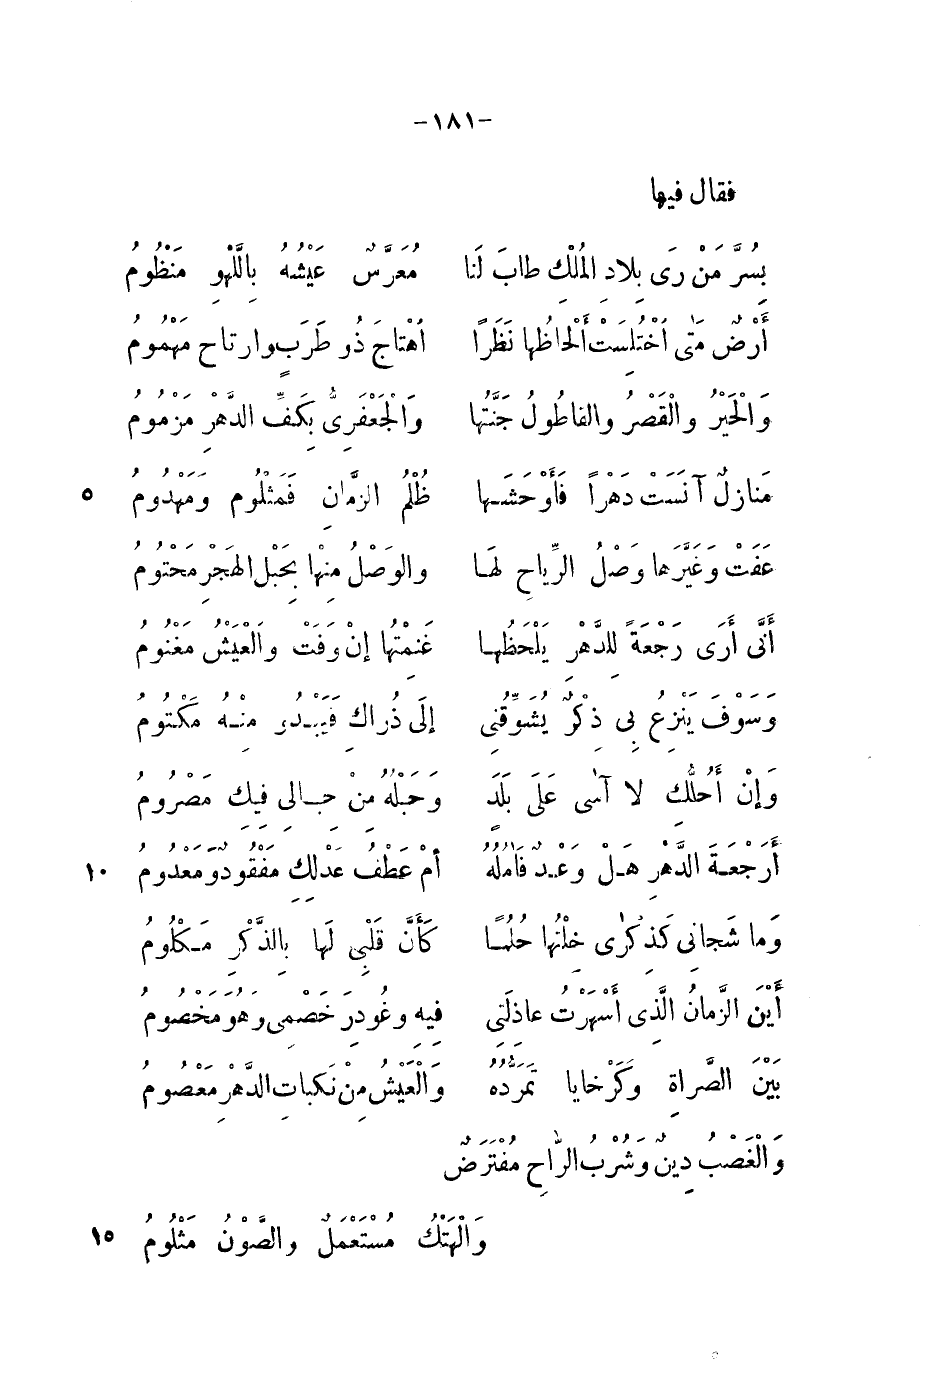 -١٨١-
فقال فيها
بِسُرَّ مَنْ رَى بِلادِ المُلْكِ طابَ لَنا مُعَرَّسٌ عَيْشُهُ بِاللَّهْوِ مَنْظُومُ
أَرْضٌ مَتٰى اُخْتُلِسَتْ أَلْحاظُها نَظَرًا اُهْتاجَ ذُو طَرَبٍ وارتاح مَهْمُومُ
وَالْحَيْرُ والْقَصْرُ والفاطُولُ جَنَّتُها وَالْجَعْفَرِىُّ بِكَفِّ الدَّهْرِ مَزْمُومُ
مَنازِلٌ آنَسَتْ دَهْراً فَأَوْحَشَها ظُلْمُ الزَّمانِ فَمَثْلُوم وَمَهْدُومُ ٥
عَفَتْ وَغَيَّرَها وَصْلُ الرِّياحِ لَها والوَصْلُ مِنْها بِحَبْلِ الهَجْرِ مَحْتُومُ
أَنَّى أَرى رَجْعَةً لِلدَّهْرِ يَلْحَظُها غَنِمْتُها إِنْ وَفَتْ والْعَيْشُ مَغْنُومُ
وَسَوفَ يَنْزِعُ بِى ذِكْرٌ يُشَوِّقُنِى إلَى ذُراكِ فَيَبْدُو مِنْهُ مَكْتُومُ
وَإنْ أَحُلُّكِ لا آسٰى عَلَى بَلَدٍ وَحَبْلُهُ مِنْ حِبالى فِيكِ مَصْرُومُ
أَرَجْعَةَ الدَّهْرِ هَلْ وَعْدٌ فَآمُلُهُ أَمْ عَطْفُ عَدْلِكِ مَفْقُودٌ وَمَعْدُومُ ١٠
وَما شَجانِى كَذِكْرٰى خِلْتُها حُلُمًا كَأَنَّ قَلْبِى لَها بِالذِّكْرِ مَكْلُومُ
أَيْنَ الزَّمانُ الَّذِى أَسْهَرْتُ عاذِلَتِى فِيهِ وغُودِرَ خَصْمِى وهُوَ مَخْصُومُ
بَيْنَ الصَّراةِ وكَرْخايا تَمَرُّدُهُ وَالْعَيْشُ مِنْ نَكَباتِ الدَّهْرِ مَعْصُومُ
وَالْغَصْبُ دِينٌ وشُرْبُ الرّاحِ مُفْتَرَضٌ
وَالْهَتْكُ مُسْتَعْمَلٌ والصَّوْنُ مَثْلُومُ ١٥